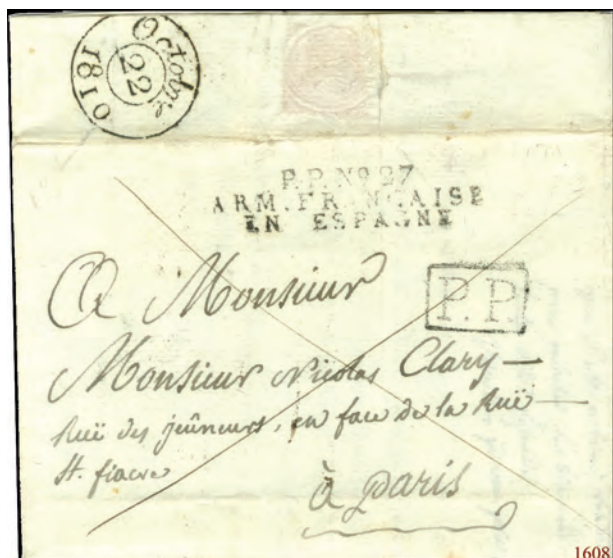 Octobre
22
1810
P.P. Nº 27
ARM. FRANCAISE
EN ESPAGNE
A Monsieur
P.P.
Monsieur Nicolas Clary —
Ruë des jeûneurs, en face de la Ruë —
St. fiacre
à paris
1608